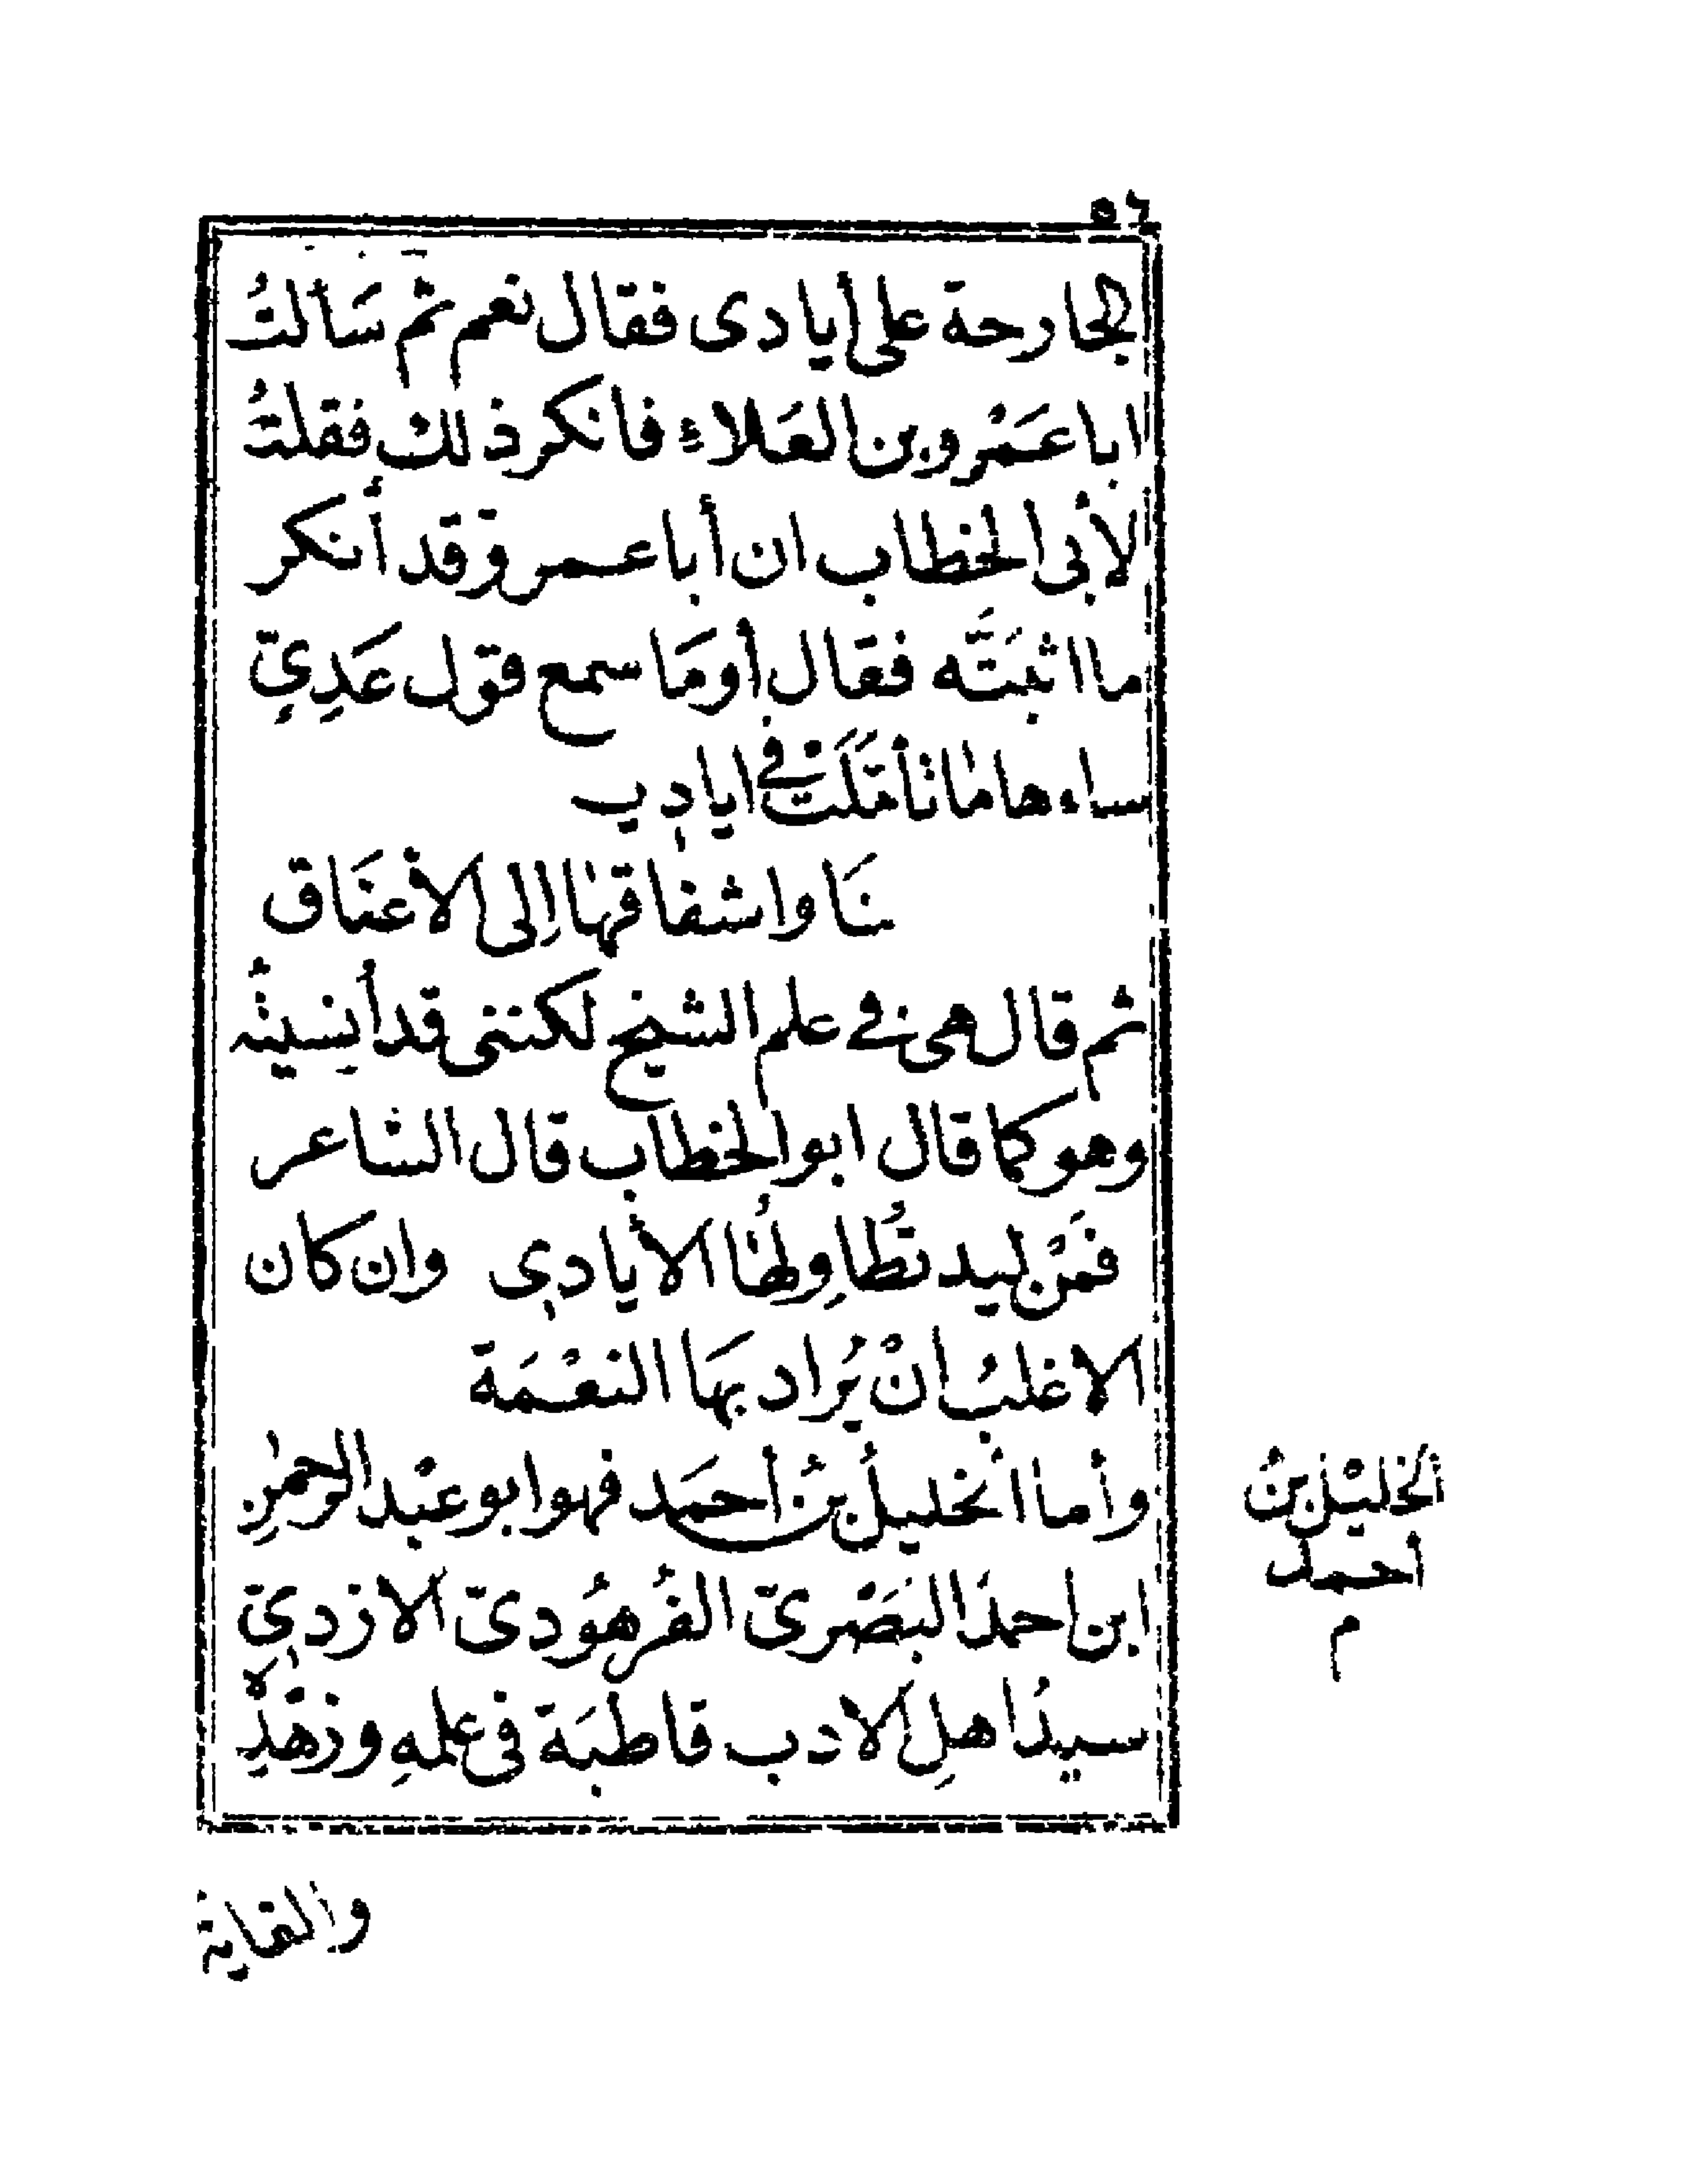 ٥٦
الجارحة على أيادى فقال نعم ثم سَألتُ
ابا عَمْرو بن العَلاءِ فانكر ذلك فقلتُ
لأبى الخطاب ان أبا عمرو قد أنكر
ما اثبَتَّه فقال أومَا سمع قول عَدِيٍّ
ساءها ما تأمَّلَتْ فى ايادِيـ
ـنَا واشفاقها اِلى الأعنَاق
ثم قال هى فى علم الشيخ لكننى قد أُنسِيتُه
وهو كما قال ابو الخطاب قال الشاعر
فمَنْ ليد تُطَاوِلُها الأيادِى وان كان
الاغلبُ انْ يُراد بهَا النعْمَة
وأما الخليلُ بنُ أحمَد فهو ابو عبْد الرحمٰنِ
ابن احمدَ البَصْرىّ الفُرهُودىّ الازدِىّ
سيدُ اهلِ الادب قاطبَة فى علمهِ وزُهْدِهِ
الخليْل بنُ
أحمد
م
والغاية